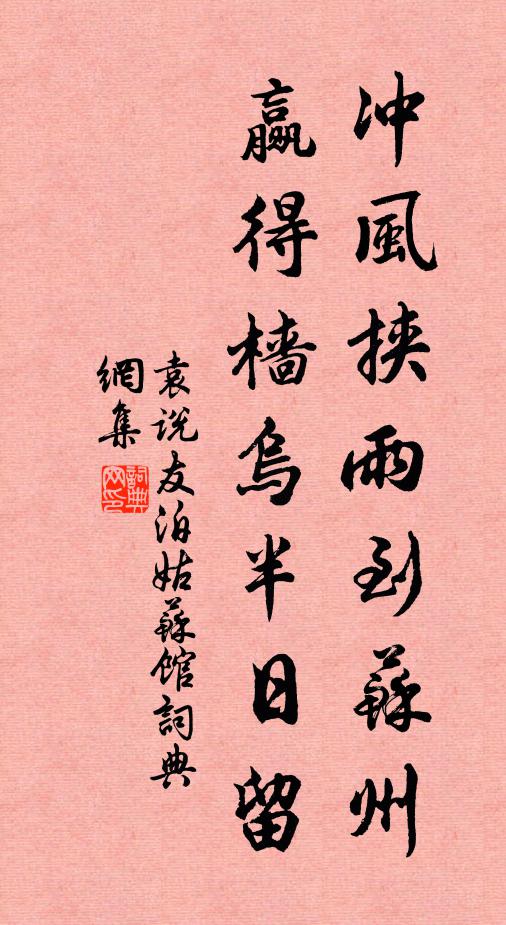 冲風挾雨到蘇州
贏得檣烏半日留
袁说友泊姑蘇馆詞典
網集
詞典
网印